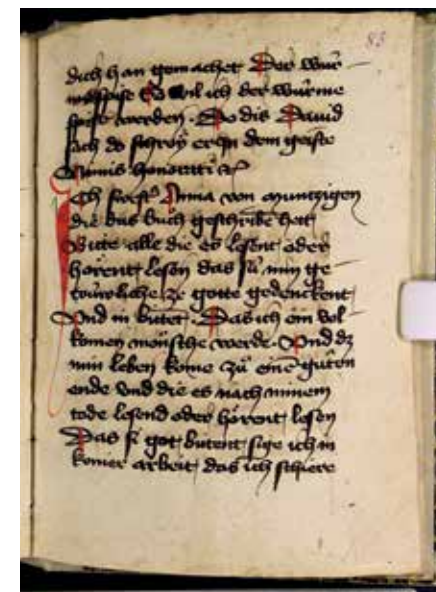 83
dich han gemachet Der wür-
spise So wil ich der würme
spise werden. Do dis David
sach do schrey er in dem geiste
Nimis honorati
Ich swest Anna von muntzigen
die das buch geschribē hett
Bitte alle die es lesent oder
hörent lesen das sū min ge-
trüwliche ze gotte gedenckent
Vnd in bittet. Das ich ein vol-
komen mönsche werde. Vnd dz
min leben kome zū einē gūten
ende vnd die es nach minem
tode lesend oder hörent lesen
Das si got bittent sige ich in
keiner arbeit das ich schiere